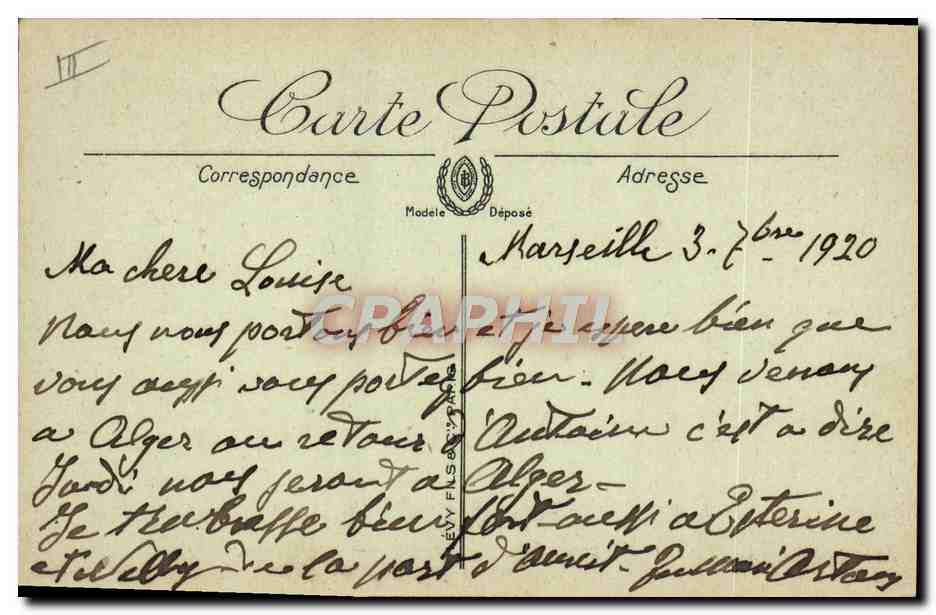 III
Carte Postale
Correspondance
Adresse
Modèle Déposé
Marseille 3-7bre 1920
Ma chere Louise
CPAPHIL
Nous nous portons bien et je espere bien que
vous aussi vous portez bien - Nous venons
a Alger au retour d'Antoine c'est a dire
Jeudi nous seront a Alger -
Je t'embrasse bien fort aussi a Esterine
et Nelly de la part d'
LEVY FILS & Cie PARIS